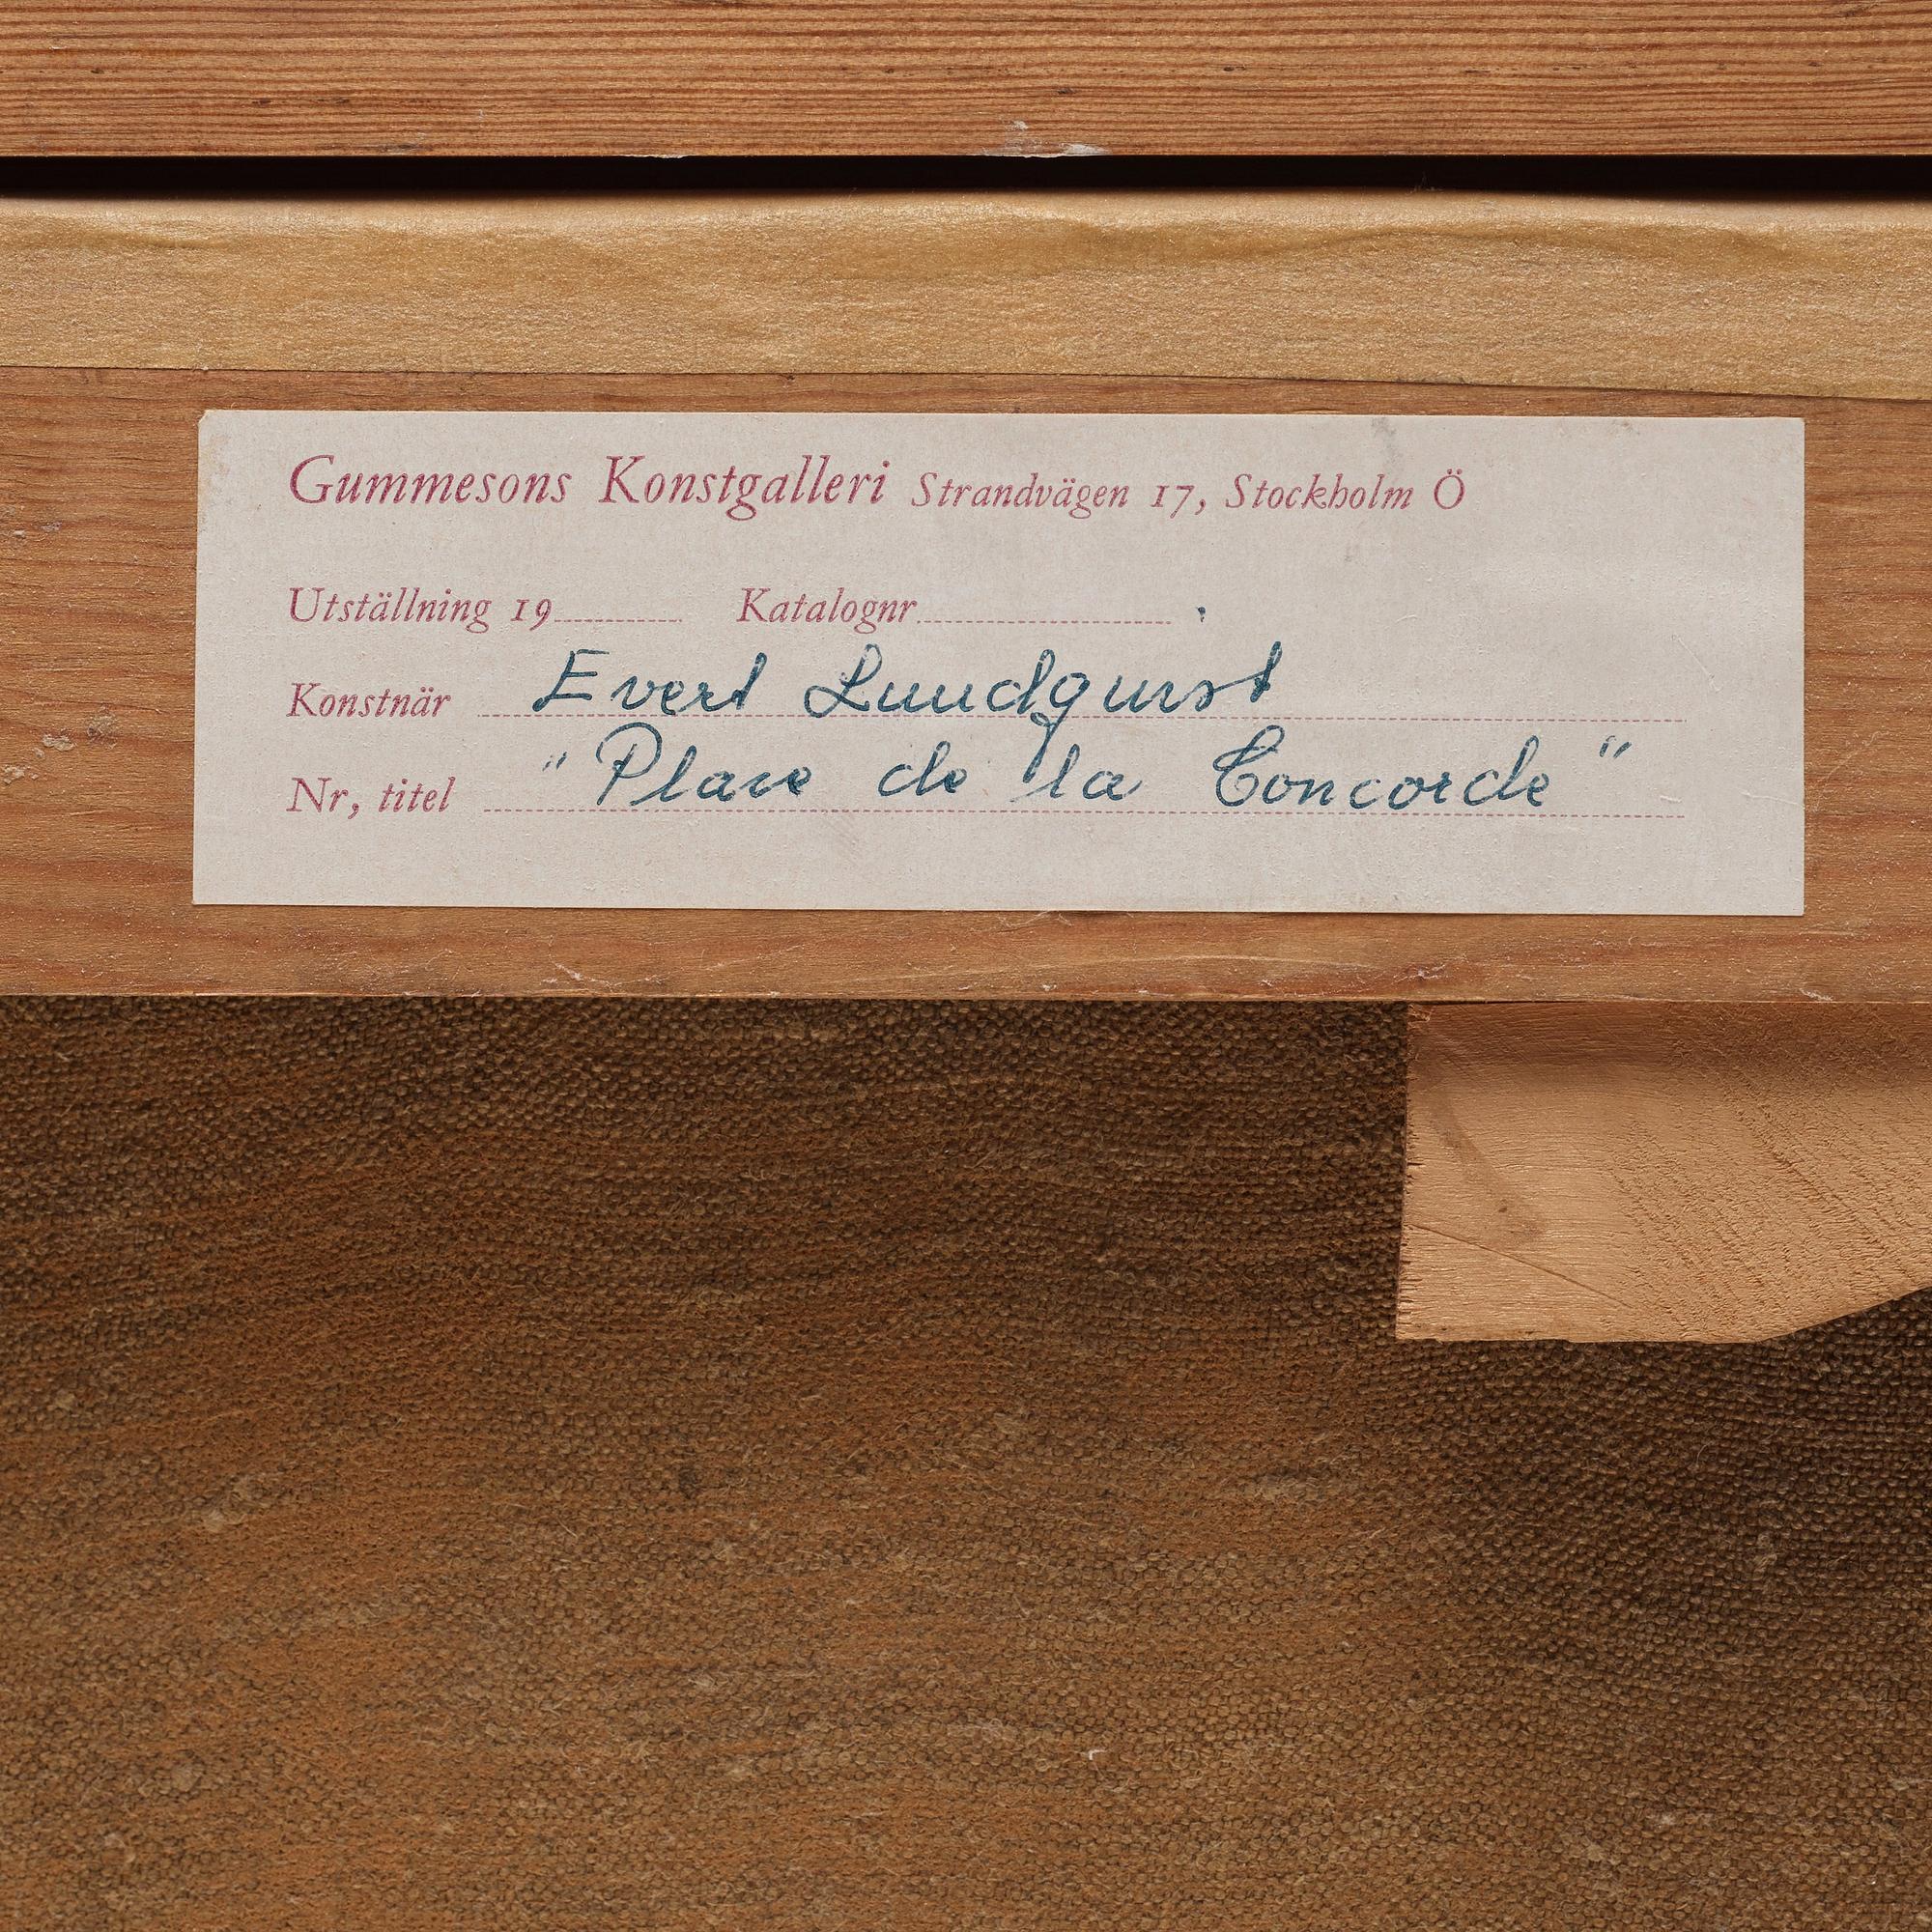 Gummesons Konstgalleri Strandvägen 17, Stockholm Ö
Utställning 19 Katalognr
Konstnär Evert Lundquist
Nr, titel "Place de la Concorde"